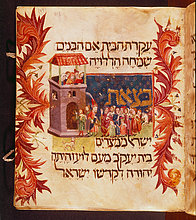 עקרת הבית אם הבנים
שמחה הללויה
בצאת
ישראל ממצרים
בית יעקב מעם לועז היתה
יהודה לקדשו ישראל